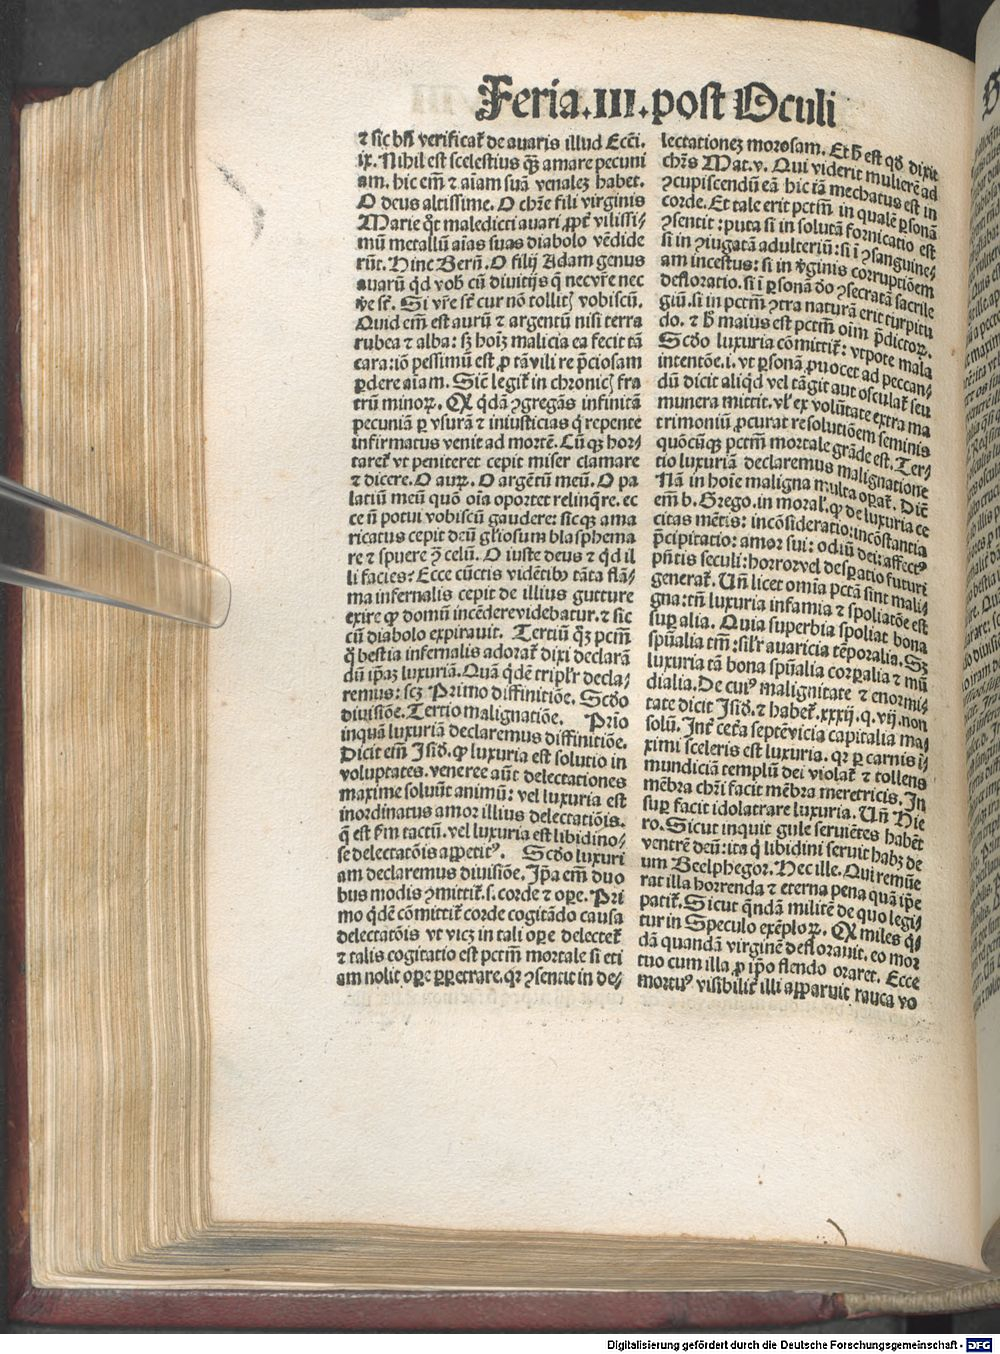 Feria.III.post Oculi
⁊ sic bñ verificat᷑ de auaris illud Ecci.
ix. Nihil est scelestius q̃ꝫ amare pecuni
am. hic em̃ ⁊ aīam suā venaleꝫ habet.
O deus altissime. O chr̄e fili virginis
Marie q̄t maledicti auari ꝓpt̄ vilissi-
mū metallū aīas suas diabolo vēdide
rūt. Hinc Bern̄. O filij Adam genus
auarū qͥd vob̄ cū diuitijs q̄ nec vr̄e nec
ṽe sūt. Si vr̄e sūt cur nō tollit᷑ vobiscū.
Quid em̃ est aurū ⁊ argentū nisi terra
rubea ⁊ alba: sꝫ hoīꝫ malicia ea fecit tā
cara: iō pessimū est ꝓ tā vili re p̄ciosam
ꝑdere aīam. Sic̄ legit᷑ in chronic̄ fra
trū minoꝝ. Qꝫ qͥdā ꝯgregās infinitā
pecuniā ꝑ vsurā ⁊ iniusticias q̄ repente
infirmatus venit ad mortē. Cū qꝫ hor-
taret᷑ vt peniteret cepit miser clamare
⁊ dicere. O auꝝ. O argētū meū. O pa
latiū meū quō oīa oportet relinq̄re. ec
ce ñ potui vobiscū gaudere: sicqꝫ ama
ricatus cepit deū gl̄iosum blasphema
re ⁊ spuere ꝯ̄ celū. O iuste deus ⁊ qͥd il
li facies? Ecce cūctis vidētibꝰ tāta flā-
ma infernalis cepit de illius gutture
exire ꝙ domū incēdere videbatur. ⁊ sic
cū diabolo expirauit. Tertiū q̄ꝫ pctm̄
q̄ bestia infernalis adorat᷑ dixi declarā
dū ip̄aꝫ luxuriā. Quā qͥdē triplr̄ decla-
remus: scꝫ Primo diffinitiōe. Scd̄o
diuisiōe. Tertio malignatiōe. Prīo
inquā luxuriā declaremus diffinitiōe.
Dicit em̃ Isid̄. ꝙ luxuria est solutio in
voluptates. veneree aūt delectationes
maxime soluūt animū: vel luxuria est
inordinatus amor illius delectatiōis.
q̄ est fm̄ tactū. vel luxuria est libidino-
se delectatōis appetitꝰ. Scd̄o luxuri
am declaremus diuisiōe. Ip̄a em̃ duo
bus modis ꝯmittit᷑. s. corde ⁊ oꝑe. Pri
mo qͥdē cōmittit᷑ corde cogitādo causa
delectatōis vt vicꝫ in tali oꝑe delectet᷑
⁊ talis cogitatio est pctm̄ mortale si eti
am nolit oꝑe ꝑpetrare. qꝛ ꝯsentit in de-
lectationeꝫ morosam. Et h̄ est qd̄ dixit
chr̄s Mat. v. Qui viderit mulierē ad
ꝯcupiscendū eā hic iā mechatus est in
corde. Et tale erit pctm̄ in qualē ꝑsonā
ꝯsentit: puta si in solutā fornicatio est
si in ꝯiugatā adulteriū: si ī ꝯsanguine-
am incestus: si in v̄ginis corruptiōem
defloratio. si ī ꝑsonā dō ꝯsecratā sacrile
giū. si in pctm̄ ꝯtra naturā erit turpitu
do. ⁊ h̄ maius est pctm̄ oīm p̄dictoꝝ.
Scd̄o luxuria cōmittit᷑: vtpote mala
intentōe. i. vt ꝑsonā ꝓuocet ad peccan-
dū dicit aliqͥd vel tāgit aut osculat᷑ seu
munera mittit. vl̄ ex volūtate extra ma
trimoniū ꝓcurat resolutiōem seminis
quōcūqꝫ pctm̄ mortale grāde est. Ter-
tio luxuriā declaremus malignatione
Nā in hoīe maligna multa oꝑat᷑. Dic̄
em̃ b. Grego. in moral᷑. ꝙ de luxuria ce
citas mētis: incōsideratio: incōstantia
p̄cipitatio: amor sui: odiū dei: affectꝰ
pn̄tis seculi: horror vel desꝑatio futuri
generat᷑. Vn̄ licet omīa pctā sint mali-
gna: tn̄ luxuria infamia ⁊ spoliatōe est
suꝑ alia. Quia superbia spoliat bona
spūalia tm̄: silr̄ auaricia tēporalia. Sꝫ
luxuria tā bona spūalia corꝑalia ⁊ mū
dialia. De cuiꝰ malignitate ⁊ enormi-
tate dicit Isid̄. ⁊ habet᷑. xxxij. q. vij. non
solū. Int̄ ceta septē vicia capitalia ma-
ximi sceleris est luxuria. qꝛ ꝑ carnis ī-
mundiciā templū dei violat᷑ ⁊ tollens
mēbra chr̄i facit mēbra meretricis. In
suꝑ facit idolatrare luxuria. Vn̄ Hie
ro. Sicut inquit gule seruiētes habēt
ventrē deū: ita q̄ libidini seruit habꝫ de
um Beelphegor. Hec ille. Qui remūe
rat illa horrenda ⁊ eterna pena quā ip̄e
patit᷑. Sicut q̄ndā militē de quo legi-
tur in Speculo exēploꝝ. Qꝫ miles q̄-
dā quandā virginē deflorauit. eo mor
tuo cum illa ꝓ ip̄o flendo oraret. Ecce
mortuꝰ visibilit᷑ illi apparuit rauca vo
Digitalisierung gefördert durch die Deutsche Forschungsgemeinschaft - DFG